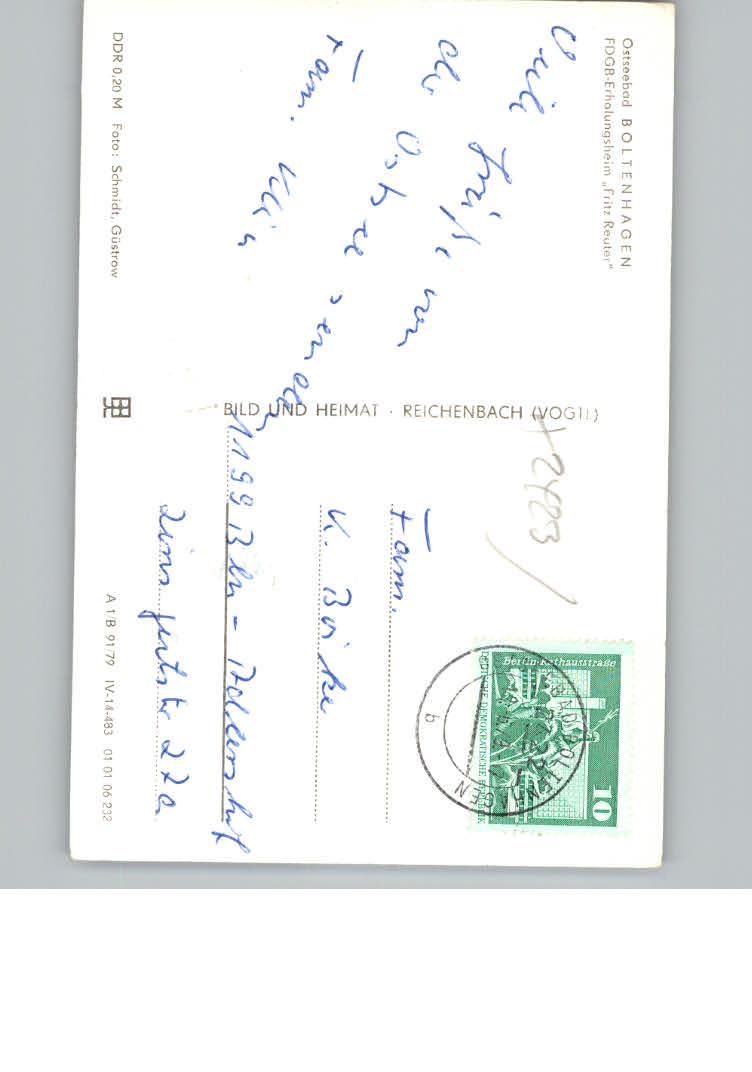 Ostseebad BOLTENHAGEN
FDGB-Erholungsheim „Fritz Reuter“
Viele
Grüße von
der Ostsee senden
Fam. Klein
DDR 0,20 M Foto: Schmidt, Güstrow
BILD UND HEIMAT · REICHENBACH (VOGTL)
Berlin-Rathausstraße
10
DEUTSCHE DEMOKRATISCHE REPUBLIK
BAD BOLTENHAGEN
b
Fam.
K.
1199 Bln - Adlershof
A 1/B 91/79 IV-14-483 01 01 06 232